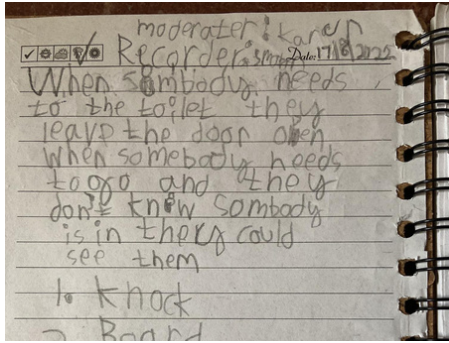 moderater: Karen
Recorder: Date: 17/8/2025
When sombody needs
to the toilet they
leave the door open
when somebody needs
to go and they
don't know sombody
is in they could
see them
1. Knock
2 Board